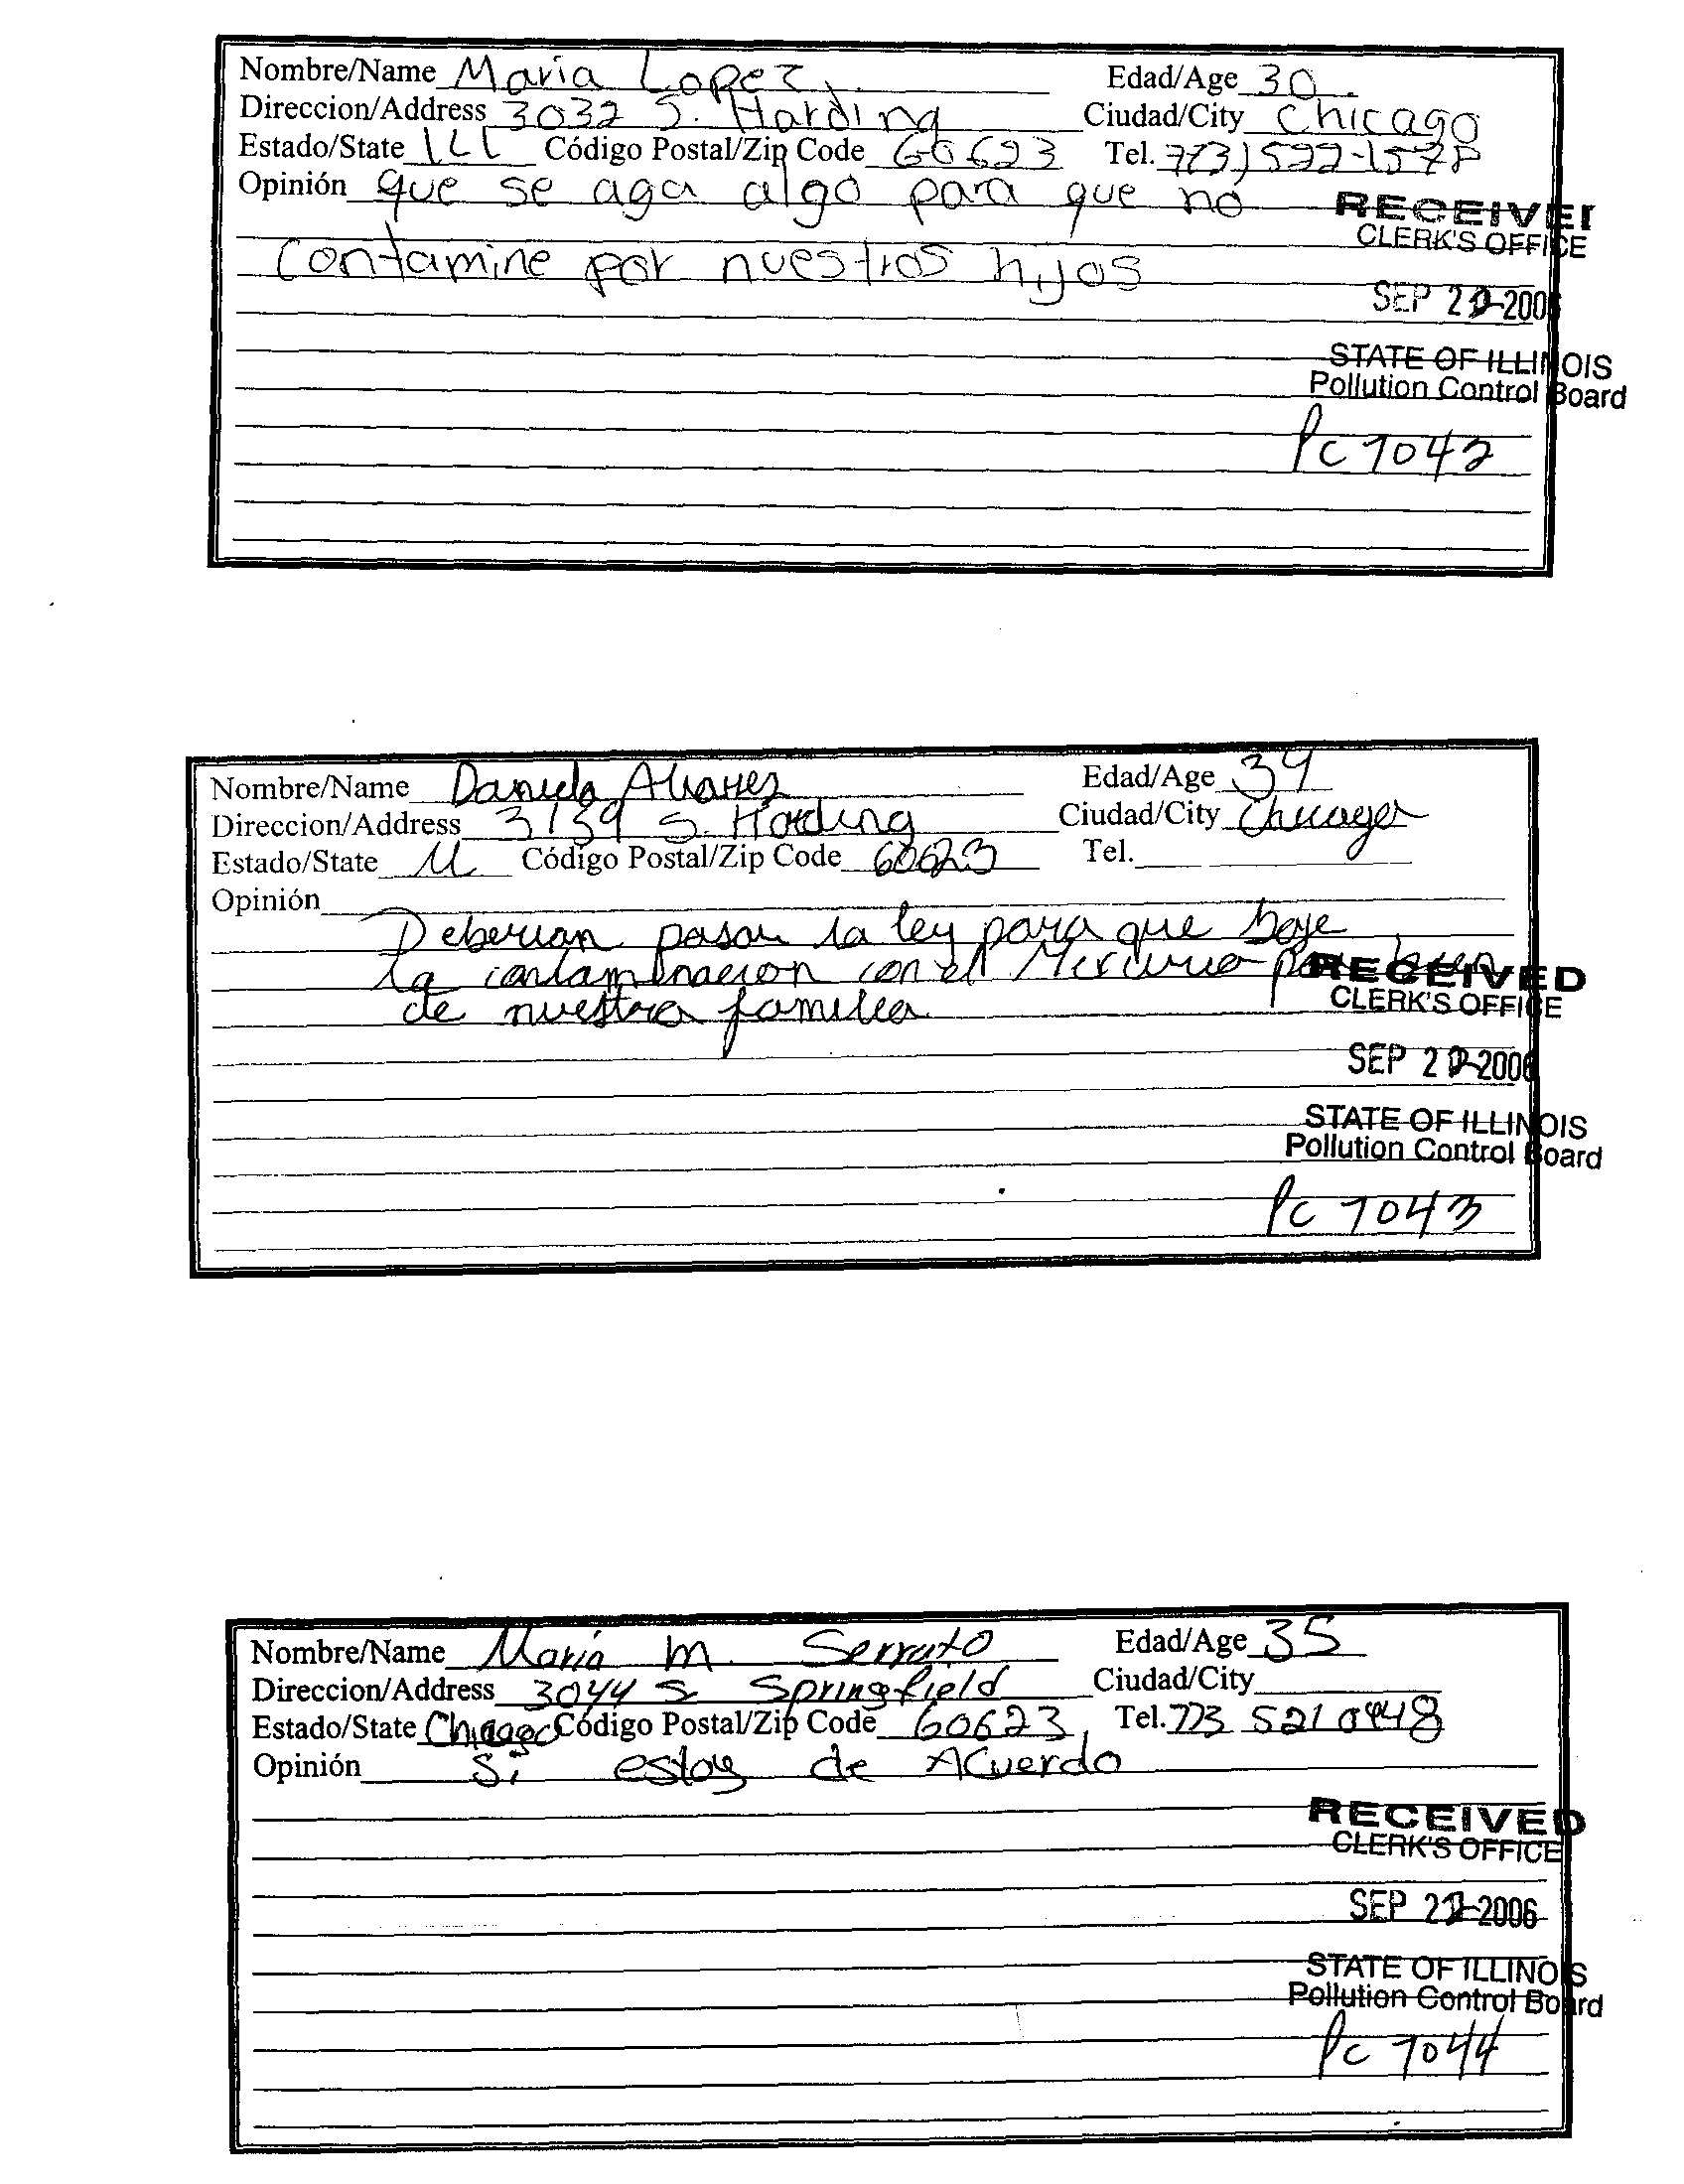 Nombre/Name Maria Lopez. Edad/Age 30.
Direccion/Address 3032 S. Harding Ciudad/City Chicago
Estado/State ILL Código Postal/Zip Code 60623 Tel. 773)522-1578
Opinión que se aga algo para que no
contamine por nuestros hijos
RECEIVE
CLERK'S OFFICE
SEP 2 2006
STATE OF ILLINOIS
Pollution Control Board
PC 7042
Nombre/Name Daniela Alvarez Edad/Age 34
Direccion/Address 3139 S. Harding Ciudad/City Chicago
Estado/State Il Código Postal/Zip Code 60623 Tel.
Opinión
Deberian pasar la ley para que baje
la contaminacion con el Mercurio para bien
de nuestra familia
RECEIVED
CLERK'S OFFICE
SEP 2 2006
STATE OF ILLINOIS
Pollution Control Board
PC 7043
Nombre/Name Maria M. Serrato Edad/Age 35
Direccion/Address 3044 S Springfield Ciudad/City
Estado/State Chicago Código Postal/Zip Code 60623, Tel. 773 521 0448
Opinión Si estoy de Acuerdo
RECEIVED
CLERK'S OFFICE
SEP 2 2006
STATE OF ILLINOIS
Pollution Control Board
PC 7044